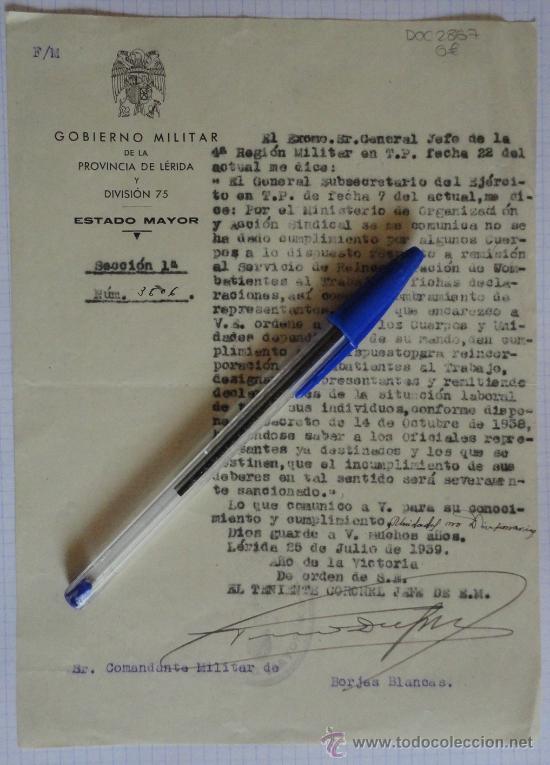 DOC 2867
6€
F/M
GOBIERNO MILITAR
DE LA
PROVINCIA DE LÉRIDA
Y
DIVISIÓN 75
ESTADO MAYOR
Sección 1ª
Núm. 3606
El Excmo.Sr.General Jefe de la
4ª Región Militar en T.P. fecha 22 del
actual me dice:
" El General Subsecretario del Ejérci-
to en T.P. de fecha 7 del actual,me di-
ce: Por el Ministerio de Organización
y Acción Sindical se me comunica no se
ha dado cumplimiento por algunos Cuer-
pos a lo dispuesto respecto a remisión
al Servicio de Reincorporación de Comba-
tientes al Trabajo fichas decla-
raciones,así como nombramiento de
representantes, que encarezco a
V.E. ordene a los Cuerpos y Uni-
dades de su Mando,den cum-
plimiento dispuestopara reincor-
poración Combatientes al Trabajo,
representantes y remitiendo
de la situación laboral
de sus individuos,conforme dispo-
ne Decreto de 14 de Octubre de 1938,
haciéndose saber a los Oficiales repre-
sentantes ya destinados y los que se
destinen,que el incumplimiento de sus
deberes en tal sentido será severamen-
te sancionado."
Lo que comunico a V. para su conoci-
miento y cumplimiento
Dios guarde a V. muchos años.
Lérida 25 de Julio de 1939.
Año de la Victoria
De orden de S.E.
EL TENIENTE CORONEL JEFE DE E.M.
Sr. Comandante Militar de
Borjas Blancas.
todocoleccion
WWW.TODOCOLECCION.NET